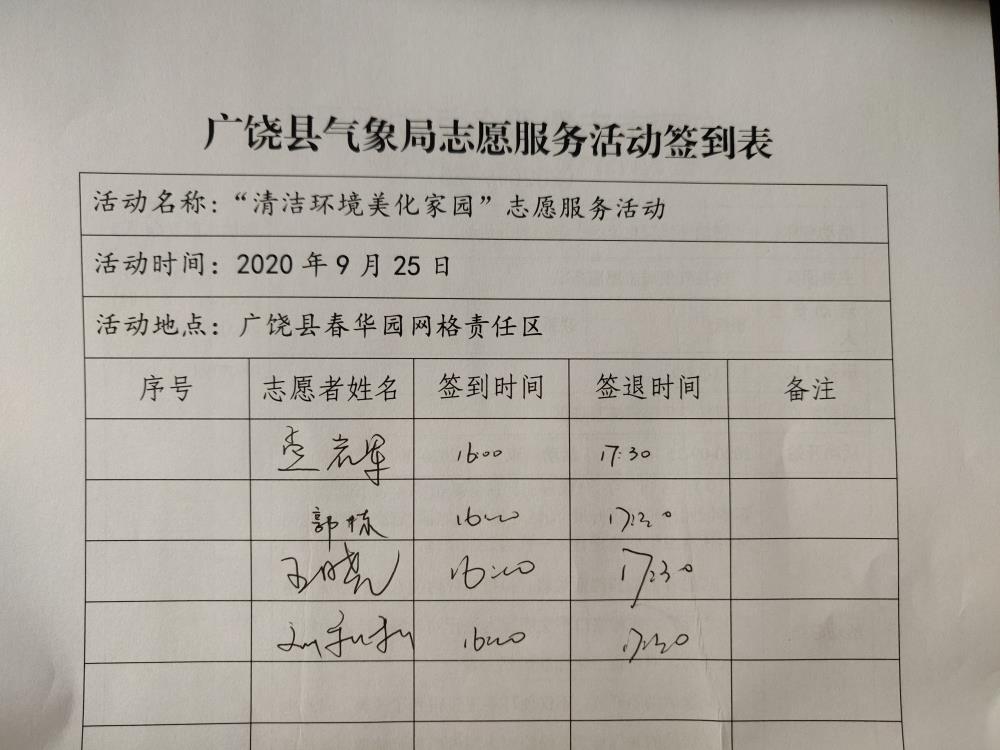 广饶县气象局志愿服务活动签到表
活动名称：“清洁环境美化家园”志愿服务活动
活动时间：2020 年 9 月 25 日
活动地点：广饶县春华园网格责任区
序号 志愿者姓名 签到时间 签退时间 备注
16:00 17:30
郭栋 16:00
王晓 16:00 17:30
刘利利 16:00